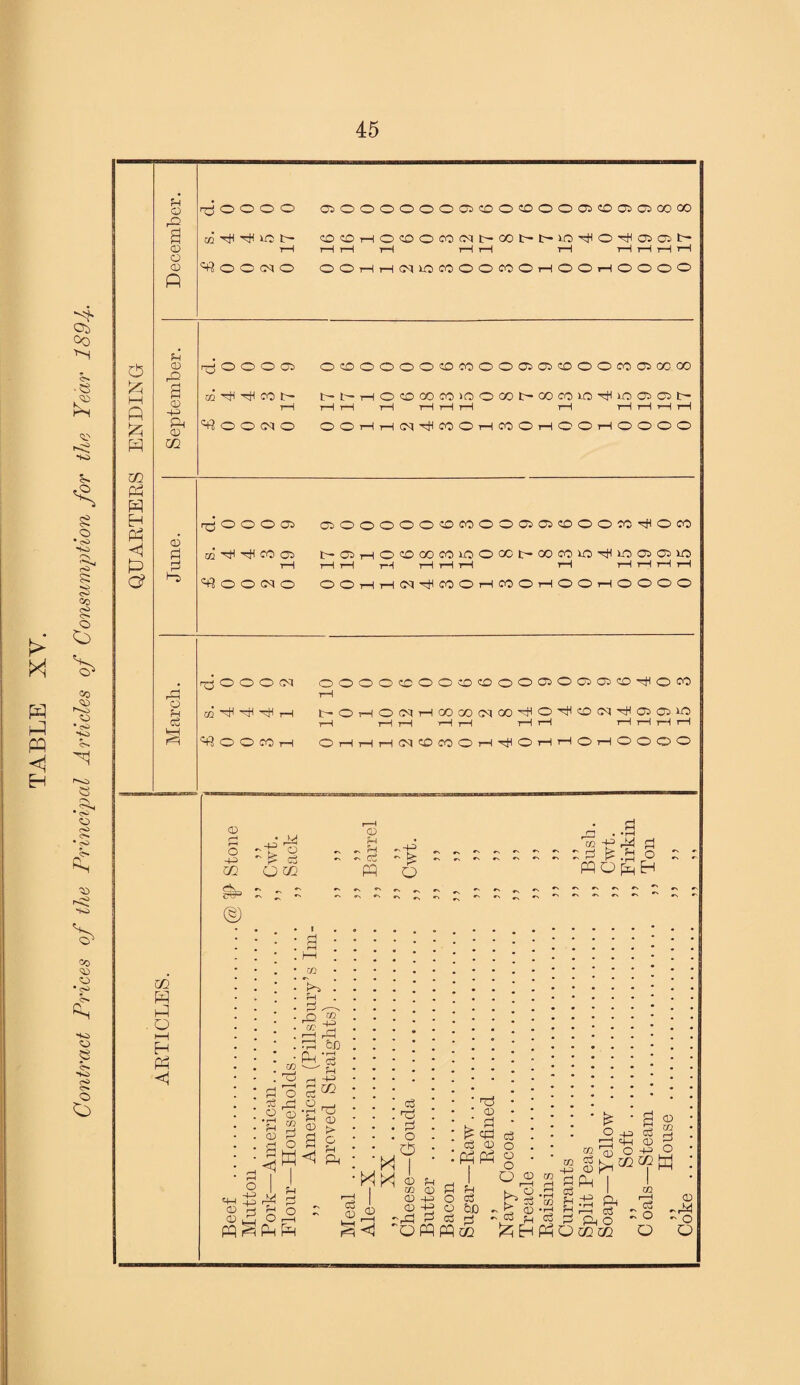 45
TABLE XV.
Contract Prices of the Principal Articles of Consumption for the Year 1894.
ARTICLES. QUARTERS ENDING
March. June. September. December.
£ s. d. £ s. d. £ s. d. £ s. d.
Beef @ ⅌ Stone 0 4 0 0 4 0 0 4 0 0 4 0
Mutton ,, ,, 0 4 0 0 4 0 0 4 0 0 4 0
Pork—American ,, Cwt. 3 4 0 2 3 0 2 3 0 2 5 0
Flour—Households ,, Sack 1 1 2 0 19 9 0 17 9 0 17 0
,, American (Pillsbury's Im-
proved Straights) ,, ,, 0 17 10 0 17 9 0 17 0 0 16 9
Meal ,, ,, 1 0 0 0 19 0 0 17 6 0 16 0
Ale—X ,, Barrel 1 11 0 1 1 0 1 1 0 1 1 0
,, XX ,, ,, 1 10 0 1 10 0 1 10 0 1 10 0
Cheese—Gouda ,, Cwt. 2 2 6 2 6 0 2 6 0 2 6 0
Butter ,, ,, 6 11 0 4 18 0 4 18 0 5 0 0
Bacon ,, ,, 3 18 0 3 13 6 3 13 6 3 13 0
Sugar—Raw ,, ,, 0 8 6 0 15 3 0 15 3 0 12 9
,, Refined ,, ,, 1 2 6 1 0 0 1 0 0 0 7 6
Navy Cocoa ,, ,, 4 18 0 3 8 0 3 8 0 3 8 0
Treacle ,, ,, 0 14 0 0 7 9 0 7 9 0 7 6
Raisins ,, ,, 1 0 9 1 18 9 1 18 9 1 17 0
Currants ,, ,, 1 4 0 0 3 6 0 3 6 0 5 0
Split Peas ,, Bush. 0 6 9 0 5 0 0 5 0 0 4 9
Soap—Yellow ,, Cwt. 1 2 9 1 4 0 1 4 0 1 0 6
,, Soft ,, Firkin 0 14 6 0 15 3 0 15 3 0 14 9
Coals—Steam ,, Ton 0 19 4 0 19 4 0 19 9 0 19 9
,, House ,, ,, 0 19 0 0 19 0 0 19 8 0 19 8
Coke ,, ,, 0 15 3 0 15 3 0 17 8 0 17 8